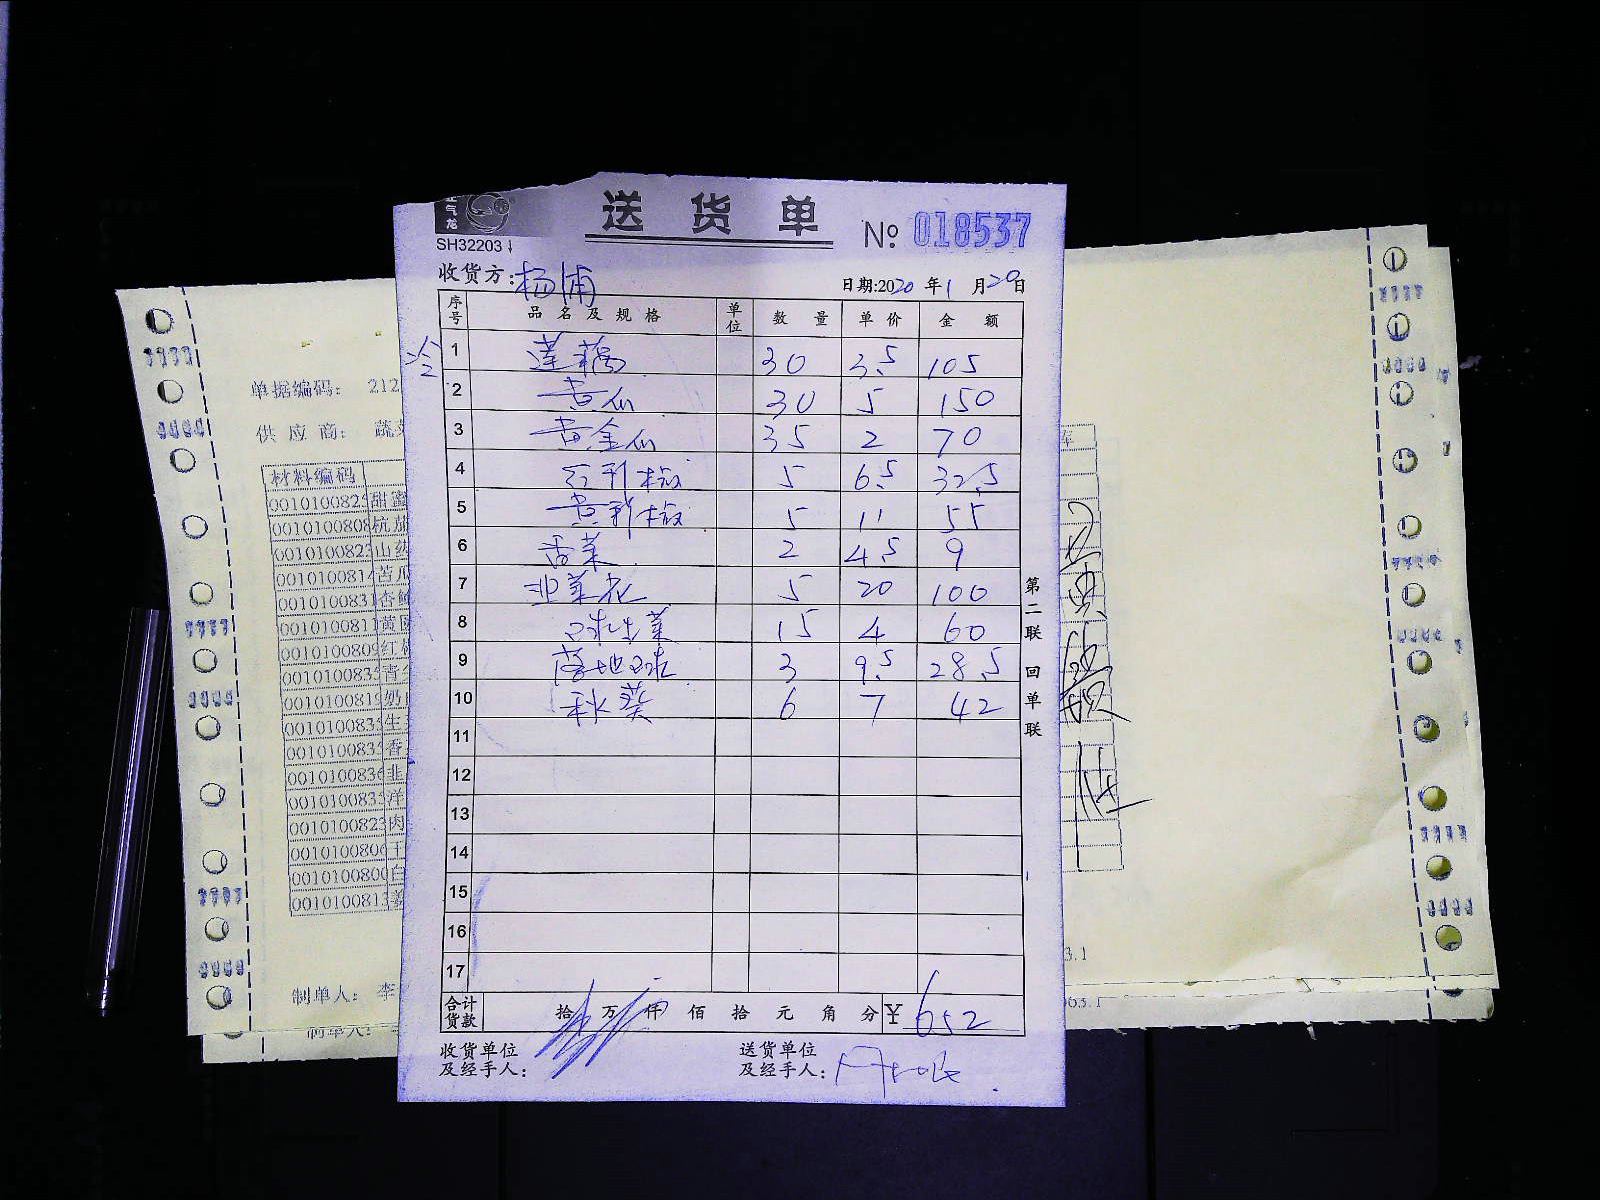 正气龙
SH32203
送货单
№ 018537
收货方: 杨浦
日期:2020年1月29日
序号 品名及规格 单位 数量 单价 金额
冷
1 莲藕 30 3.5 105
2 黄瓜 30 5 150
3 黄金瓜 35 2 70
4 红彩椒 5 6.5 32.5
5 黄彩椒 5 11 55
6 香菜 2 4.5 9
7 韭菜花 5 20 100
8 球生菜 15 4 60
9 落地球 3 9.5 28.5
10 秋葵 6 7 42
11
12
13
14
15
16
17
合计货款 拾 万 仟 佰 拾 元 角 分 ¥ 652
收货单位及经手人:
送货单位及经手人:
第二联 回单联
单据编码: 212
供应商: 蔬
材料编码
001010082 甜
0010100808 杭茄
001010082 山
001010081 苦瓜
001010083 杏
001010081 黄
001010080 红
001010083 青
001010081 奶
001010083 生
001010083 香
001010083 韭
001010083 洋
001010082 肉
001010080 干
001010080 白
001010081 姜
制单人: 李
制单人:
库
3.1
063.1